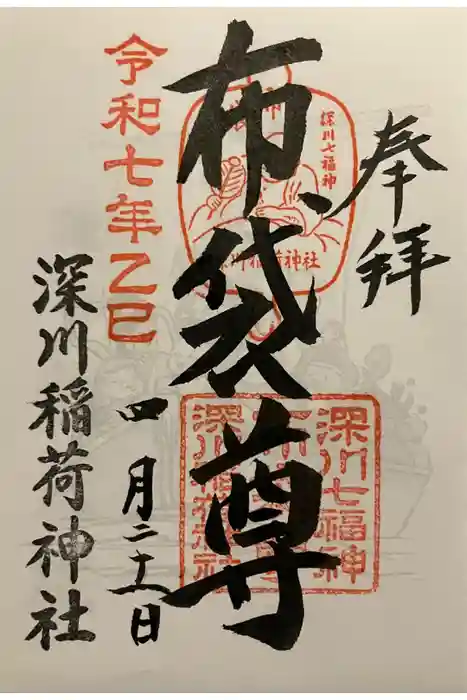 奉拝
深川七福神
布袋尊
深川稲荷神社
深川七福神
布袋尊
深川稲荷神社
令和七年乙巳
四月二十一日
深川稲荷神社